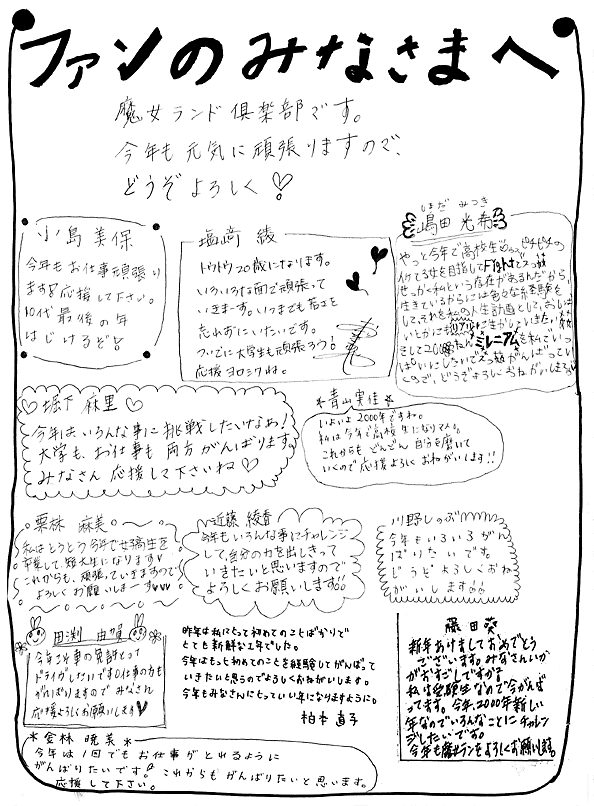 ファンのみなさまへ
魔女ランド倶楽部です。
今年も元気に頑張りますので、
どうぞよろしく♡
小島美保
今年もお仕事頑張り
ます!応援して下さい。
10代最後の年
はじけるぞ!
塩崎 綾
トウトウ20歳になります。
いろいろな面で頑張って
いきまーす。いつまでも若さを
忘れずにいたいです。
ついでに大学生も頑張ろう!
応援ヨロシクね。
しまだ みつき
嶋田 光希
やっと今年で高校生
せっかく私という存在があるんだから
生きているからには色々な経験を
して、それを私の人生計画として、
ミレニアム
ので、どうぞよろしくおねがいします
堀下 麻里
今年は、いろんな事に挑戦したいなぁ!
大学も、お仕事も 両方がんばります
みなさん 応援して下さいね♡
青山実佳
いよいよ2000年ですね。
私は今年で高校生になります。
これからも どんどん 自分を磨いて
いくので応援よろしくおねがいします!!
栗林 麻美
私はとうとう今年で女子高生を
卒業して短大生になります
これからも、頑張っていきますので
よろしくお願いしまーす
近藤 綾香
今年もいろんな事にチャレンジ
して、自分の力を出しきって
いきたいと思いますので
よろしくお願いします!!
川野しのぶ
今年もいろいろがん
ばりたいです
どうぞよろしくおね
がいします
田渕 由賀
今年こそ車の免許とって
ドライブしたいです!仕事の方も
がんばりますのでみなさん
応援よろしくお願いします♥
昨年は私にとって初めてのことばかりで
とても新鮮な1年でした。
今年はもっと初めてのことを経験してがんばって
いきたいと思うのでよろしくおねがいします。
今年もみなさんにとっていい年になりますように。
柏木 直子
藤田葵
新年あけましておめでとう
ございます。みなさんいか
がおすごしですか?
私は受験生なので今がんば
ってます。今年、2000年新しい
年なのでいろんなことにチャレン
ジしたいです。
今年も魔女ランをよろしくお願い致します。
会林 暁美
今年は1回でもお仕事がとれるように
がんばりたいです。これからもがんばりたいと思います。
応援して下さい。